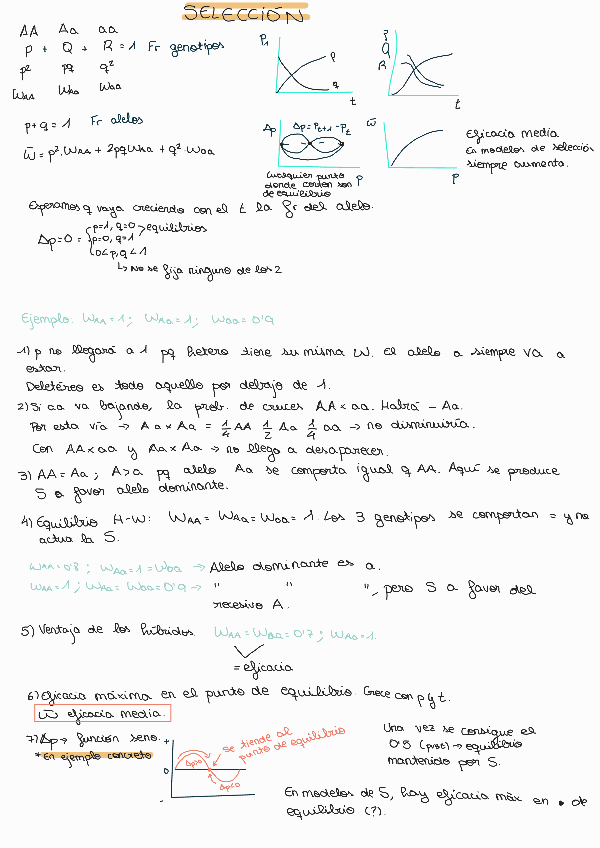 SELECCIÓN
AA Aa aa
P + Q + R = 1 Fr genotipos
p² pq q²
WAA WAa Waa
p+q = 1 Fr alelos
w̄ = p²·WAA + 2pqWAa + q²·Waa
P₁
p
q
t
P
Q
R
t
Δp
Δp = Pt+1 - Pt
P
Cualquier punto
donde corten son
de equilibrio
w̄
P
Eficacia media.
En modelos de selección
siempre aumenta.
Esperamos q vaya creciendo con el t la fr del alelo.
Δp=0 = p=1, q=0 > equilibrios
p=0, q=1
0<p,q<1
↳ No se fija ninguno de los 2
Ejemplo: WAA = 1; WAa = 1; Waa = 0'9
1) p no llegará a 1 pq hetero tiene su misma W. El alelo a siempre va a
estar.
Deletéreo es todo aquello por debajo de 1.
2) Si aa va bajando, la prob. de cruces AA × aa. Habrá - Aa.
Por esta vía → Aa × Aa = 1/4 AA 1/2 Aa 1/4 aa → no disminuiría.
Con AA × aa y Aa × Aa → no llego a desaparecer.
3) AA = Aa; A > a pq alelo Aa se comporta igual q AA. Aquí se produce
S a favor alelo dominante.
4) Equilibrio H-W: WAA = WAa = Waa = 1. Los 3 genotipos se comportan = y no
actua la S.
WAA = 0'8; WAa = 1 = Waa → Alelo dominante es a.
WAA = 1; WAa = Waa = 0'9 → " " ", pero S a favor del
recesivo A.
5) Ventaja de los híbridos. WAA = Waa = 0'7; WAa = 1.
= eficacia
6) Eficacia máxima en el punto de equilibrio. Crece con p y t.
w̄ eficacia media.
7) Δp → función seno.
* En ejemplo concreto
+
0
-
Δp>0
Δp<0
se tiende al
punto de equilibrio
Una vez se consigue el
0'5 → equilibrio
mantenido por S.
En modelos de S, hay eficacia máx en • de
equilibrio (?).